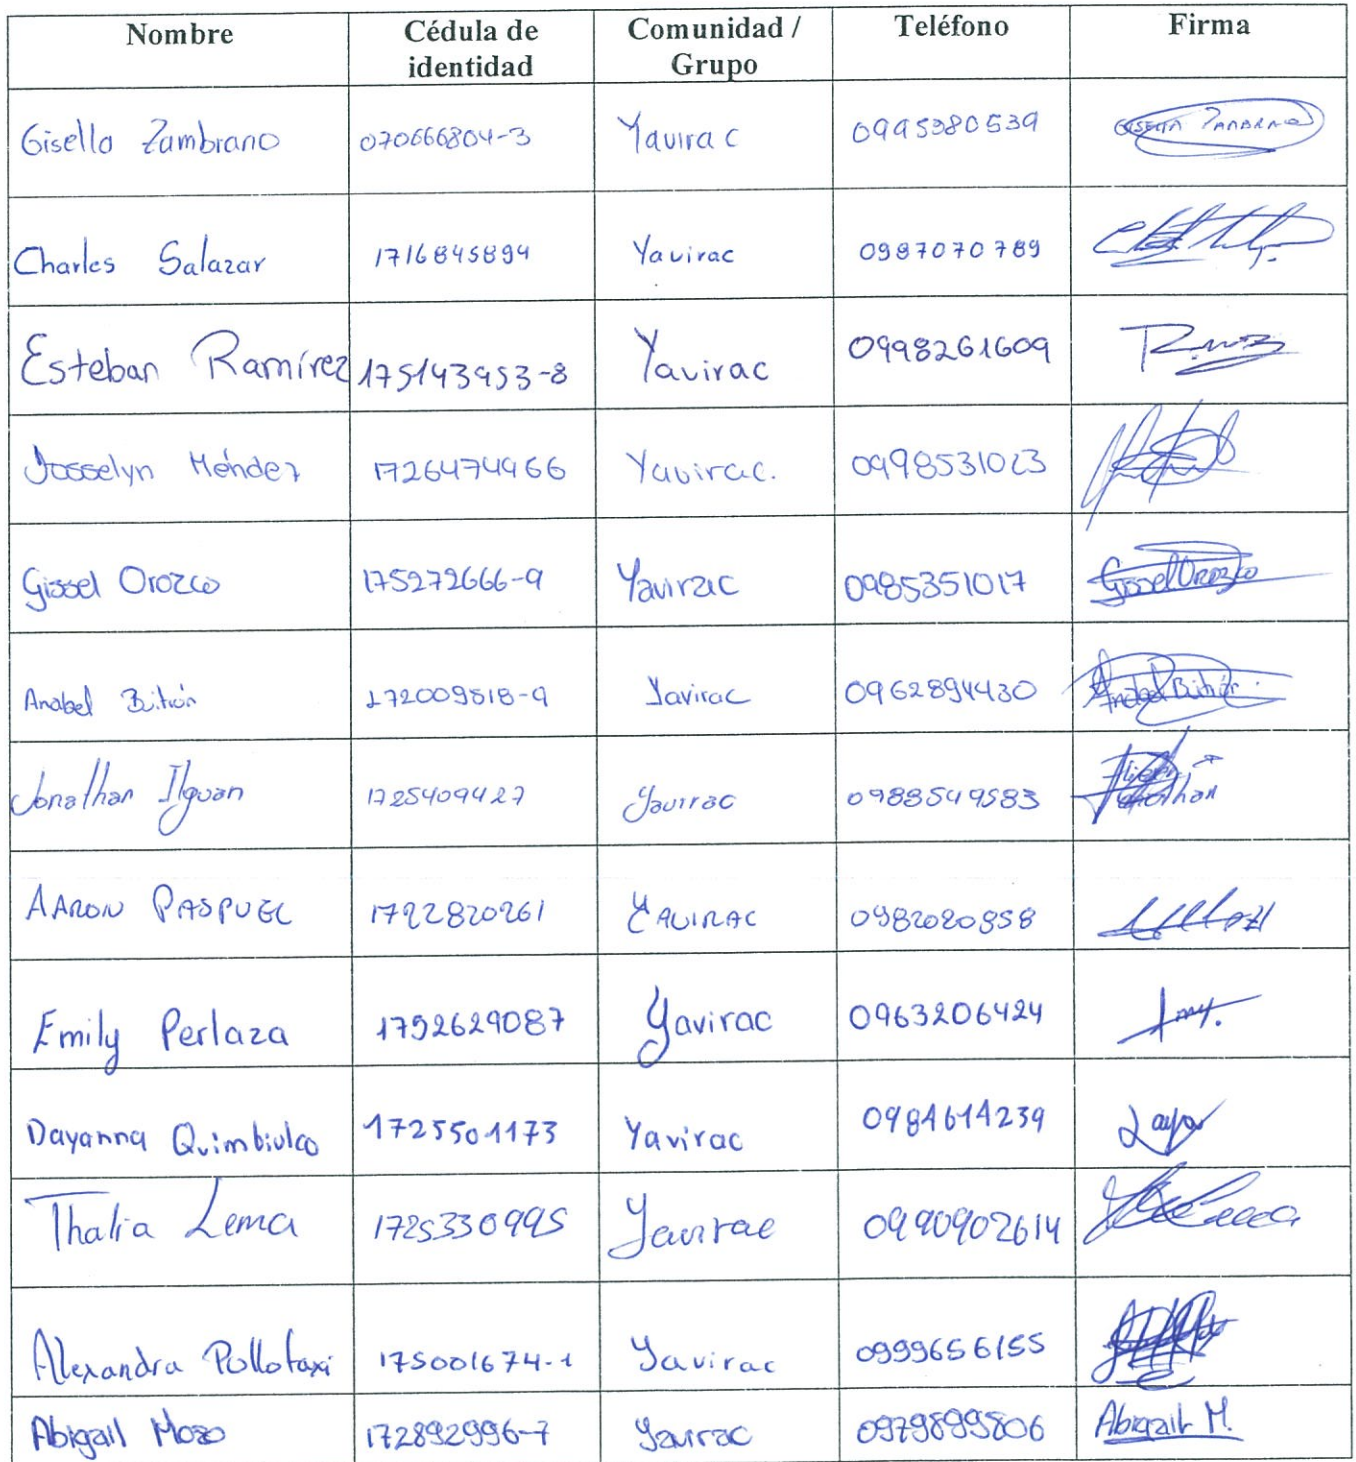 Nombre Cédula de identidad Comunidad / Grupo Teléfono Firma
Gisella Zambrano 070666804-3 Yavirac 0995380539 Gisella Zambrano
Charles Salazar 1716845894 Yavirac 0987070789
Esteban Ramírez 175143953-8 Yavirac 0998261609
Josselyn Méndez 1726474966 Yavirac. 0998531023
Gissel Orozco 175272666-9 Yavirac 0985351017 Gissel Orozco
Anabel Bitrón 172009518-9 Yavirac 0962894430 Anabel Bitrón
Jonathan Ilguan 1725409427 Yavirac 0988549583 Jonathan
AARON PASPUEL 1722820261 YAVIRAC 0982020858
Emily Perlaza 1752629087 Yavirac 0963206424
Dayanna Quimbiulco 1725501173 Yavirac 0984614239
Thalia Lema 1725330995 Yavirac 0990902614
Alexandra Pullotaxi 175001674-1 Yavirac 0999656155
Abigail Mozo 172892996-7 Yavirac 0979899806 Abigail M.